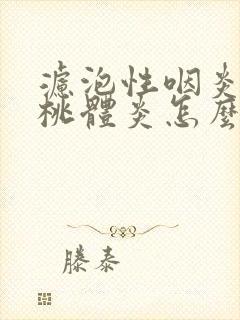 濾泡性咽炎
桃體炎怎麼
滕泰